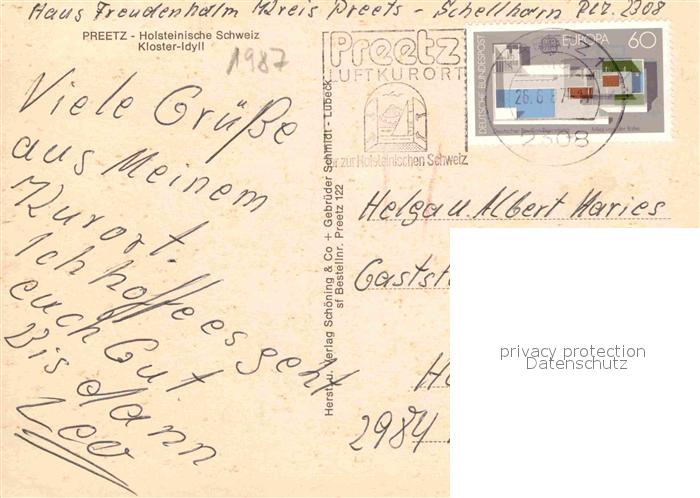 Haus Freudenholm Kreis Preets - Schellhorn PLZ. 2308
PREETZ - Holsteinische Schweiz
Kloster-Idyll
1987
Viele Grüße
aus Meinem
Kurort.
Ich hoffe es geht
euch Gut.
Bis dann
Leo
Herst. u. Verlag Schöning & Co + Gebrüder Schmidt - Lübeck
sf Bestellnr. Preetz 122
Preetz
LUFTKURORT
zur Holsteinischen Schweiz
DEUTSCHE BUNDESPOST
EUROPA 60
2308
Helga u. Albert Haries
2984
privacy protection
Datenschutz